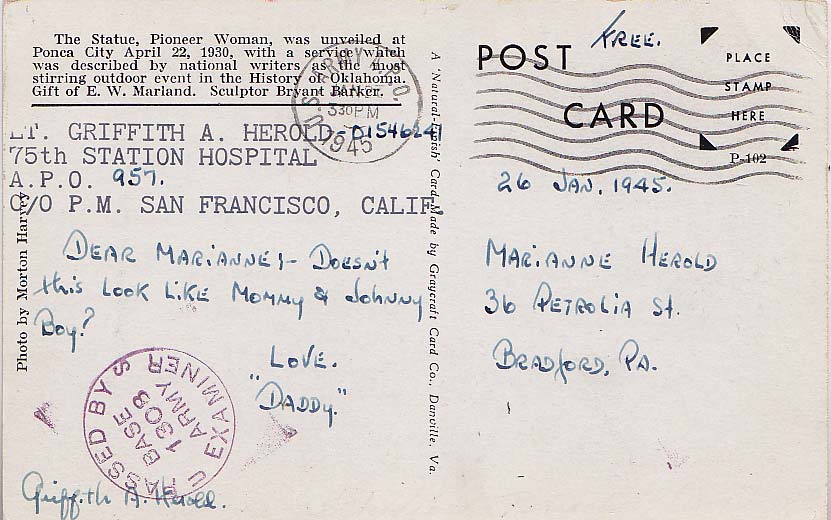 The Statue, Pioneer Woman, was unveiled at
Ponca City April 22, 1930, with a service which
was described by national writers as the most
stirring outdoor event in the History of Oklahoma.
Gift of E. W. Marland. Sculptor Bryant Barker.
U.S. ARMY A.P.O
JAN
330PM
1945
LT. GRIFFITH A. HEROLD-01546241
75th STATION HOSPITAL
A.P.O. 957.
C/O P.M. SAN FRANCISCO, CALIF.
Photo by Morton Harvey
DEAR MARIANNE;- DOESN'T
this LOOK LIKE MOMMY & JOHNNY
BOY?
LOVE.
"DADDY."
PASSED BY
BASE
1308
ARMY
U S EXAMINER
Griffith A. Herold.
A 'Natural-Finish' Card Made by Graycraft Card Co., Danville, Va.
FREE.
POST
CARD
PLACE
STAMP
HERE
P-102
26 JAN. 1945.
MARIANNE HEROLD
36 PETROLIA St.
BRADFORD, PA.